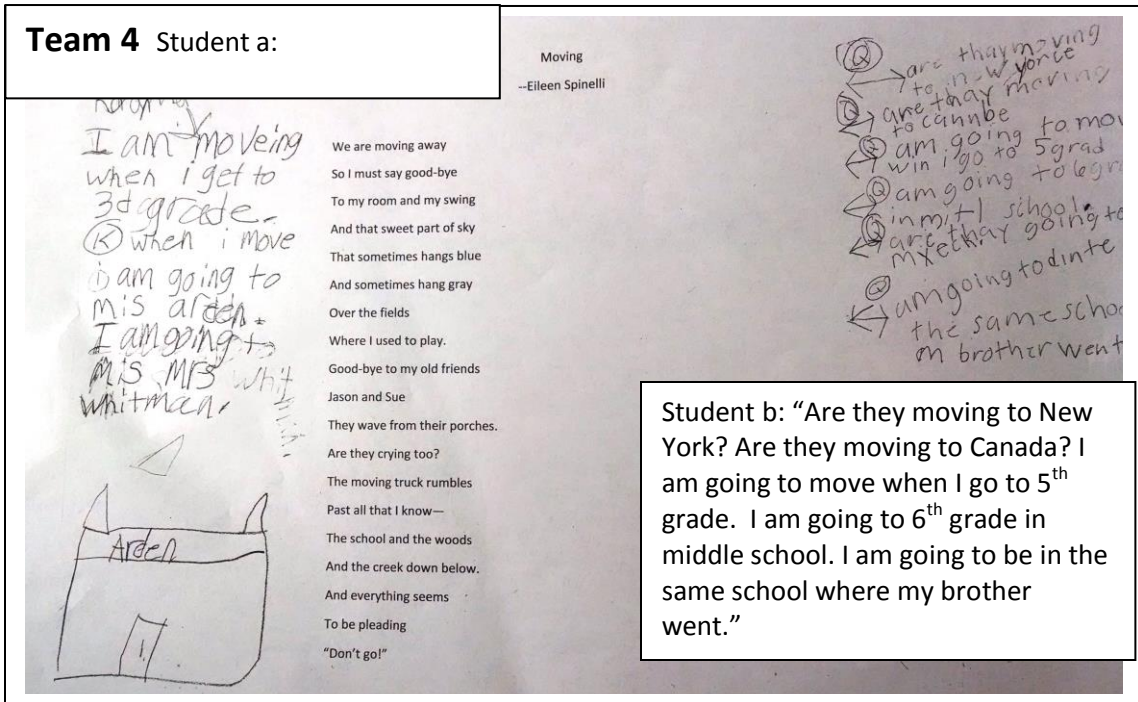 Team 4 Student a:
Moving
--Eileen Spinelli
I am moveing
when i get to
3d grade.
K when i move
i am going to
mis arden.
I am going to
mis Mrs whit
whitman.
Arden
We are moving away
So I must say good-bye
To my room and my swing
And that sweet part of sky
That sometimes hangs blue
And sometimes hang gray
Over the fields
Where I used to play.
Good-bye to my old friends
Jason and Sue
They wave from their porches.
Are they crying too?
The moving truck rumbles
Past all that I know—
The school and the woods
And the creek down below.
And everything seems
To be pleading
"Don't go!"
Q are thay moving
to new yorce
Q are thay moving
to cannbe
Q am going to mov
win i go to 5grad
Q am going to 6gra
in mitl school.
Q are thay going to
Q am going to dinte
the same schoo
m brother went
Student b: “Are they moving to New
York? Are they moving to Canada? I
am going to move when I go to 5th
grade. I am going to 6th grade in
middle school. I am going to be in the
same school where my brother
went.”